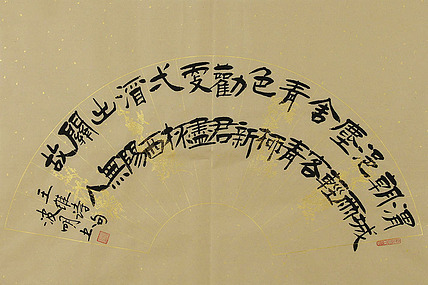 渭城
朝雨
浥輕
塵客
舍青
青柳
色新
勸君
更盡
弌杯
酒西
出陽
關無
故人
王維詩句
明书